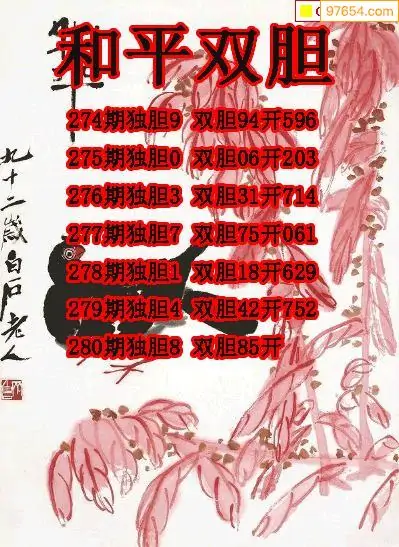 97654.com
和平双胆
274期独胆9 双胆94开596
275期独胆0 双胆06开203
276期独胆3 双胆31开714
277期独胆7 双胆75开061
278期独胆1 双胆18开629
279期独胆4 双胆42开752
280期独胆8 双胆85开
九十二岁白石老人